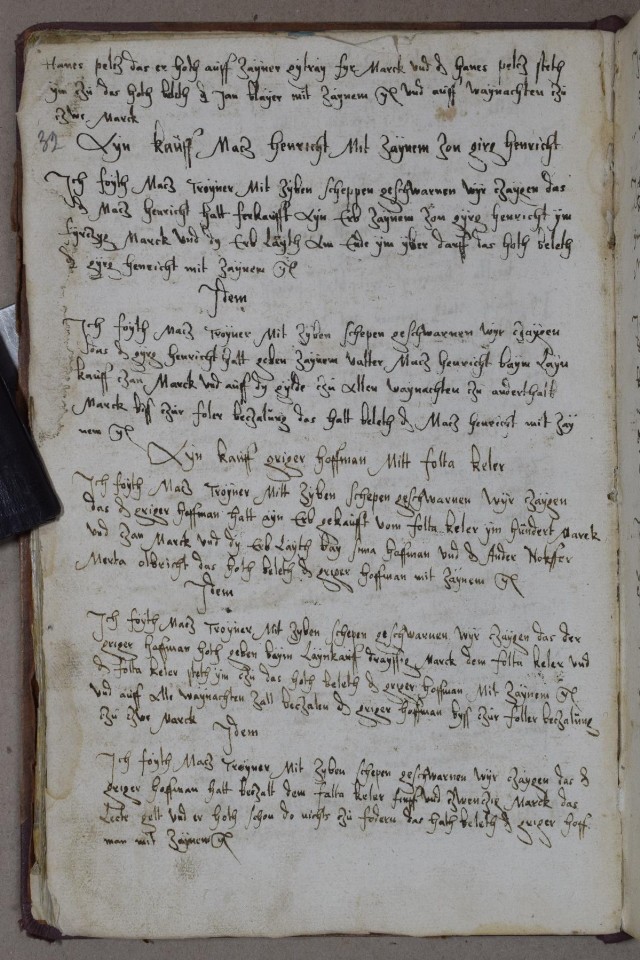 Hanes peltz das er hoth auff zayner gytray fyr Marck vnd d Hanes peltz steth
ym zu das hoth beleth d Jan blayer mit zaynem gl vnd auff waynachten zu
zwe Marck
32 Ayn kauff Matz Henricht Mit zaynem zon girg Henricht
Ich foyth Matz Troyner Mit zyben scheppen geschwarnen wyr zaygen das
d Matz Henricht hatt ferkaufft ayn Erb zaynem zon gyrg Henricht ym
fyrczyg Marck vnd dy Erb layth am Ende ym yber darff das hoth beleth
d gyrg Henricht mit zaynem gl
Idem
Ich foyth Matz Troyner Mit zyben schepen geschwarnen wyr czaygen
das d gyrg Henricht hatt geben zaynem vatter Matz Henricht baym layn
kauff czan Marck vnd auff dy gylde czu allen waynachten zu anderthalt
Marck biss zur foler beczalung das hatt beleth d Matz Henricht mit zay
nem gl
Ayn kauff griger Hoffman Mitt folta keler
Ich foyth Matz Troyner Mitt zyben schepen geschwarnen wyr zaygen
das d griger Hoffman hatt ayn Erb gekaufft vom folta keler ym hundert Marck
vnd zan Marck vnd dy Erb layth bay sima Hoffman vnd d Ander Nokffer
Merta olbricht das hoth beleth d griger Hoffman mit zaynem gl
Idem
Ich foyth Matz Troyner Mit zyben schepen geschwarnen wyr czaygen das der
griger Hoffman hoth geben baym laynkauff drayssig Marck dem folta keler vnd
d folta keler steth ym czu das hoth beleth d griger Hoffman Mit zaynem gl
vnd auff alle waynachten zall beczalen d griger Hoffman byss czur foller beczalung
zu zwe Marck
Idem
Ich foyth Matz Troyner Mit zyben schepen geschwarnen wyr czaygen das d
griger Hoffman hatt beczalt dem falta keler funff vnd zwenzig Marck das
Lecte gelt vnd er hoth schon do nichts zu fodern das hath beleth d griger Hoff
man mit zaynem gl